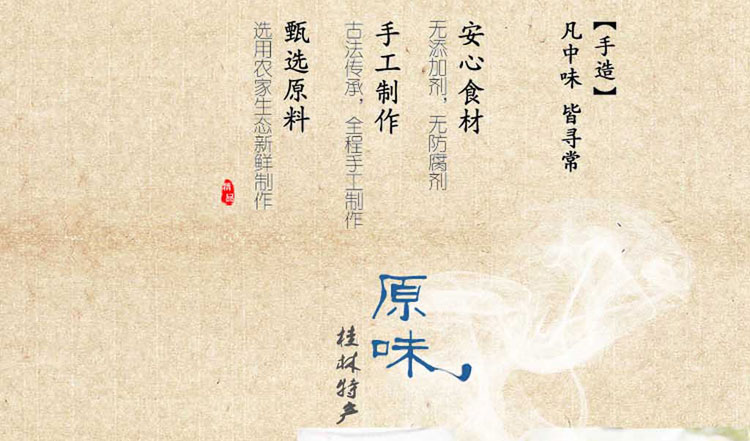 【手造】
凡中味 皆寻常
安心食材
无添加剂，无防腐剂
手工制作
古法传承，全程手工制作
甄选原料
选用农家生态新鲜制作
精品
原味
桂林特产